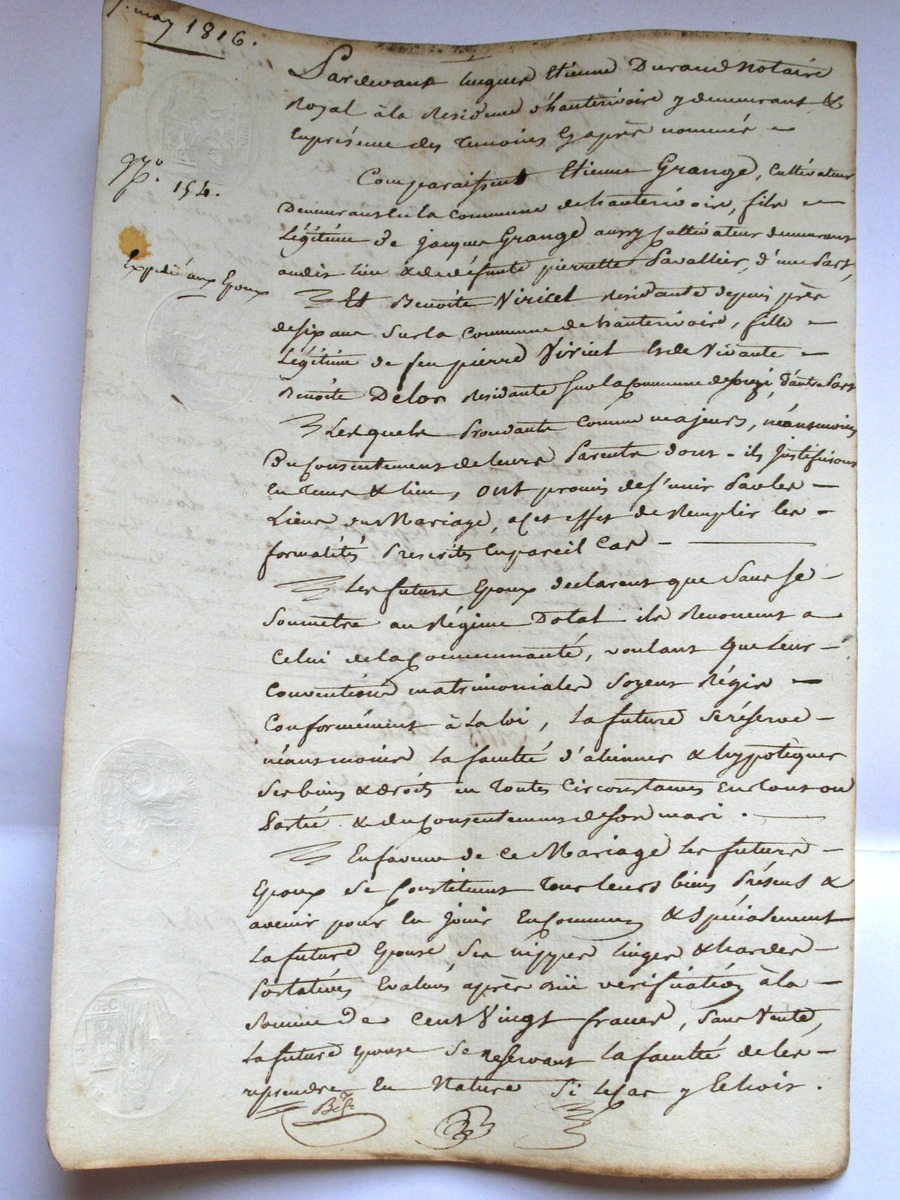 may 1816.
N.o 154.
Expédié aux Epoux
Pardevant Etienne Durand Notaire
Royal à la Residence d'hauterivoire y demeurant &
En présence des Temoins Cy après nommés
Comparaissent Etienne Grange, Cultivateur
Demeurant sur la commune de hauterivoire, fils
Légitime de jacque Grange aussy Cultivateur demeurant
audit lieu & de défunte pierrette Pavallier, d'une Part,
Et Benoite Viricel Résidante depuis près
de six ans Sur la Commune de hauterivoire, fille
Légitime de feu pierre Viricel Et de Vivante
Benoîte Delor Residante Sur la Commune de Souzi, d'autre Part
Lesquels Procedants Comme majeurs, néansmoins
Du Consentement de leurs Parents dont ils Justifieront
En Tems & lieu, ont promis de s'unir Par les
Liens du Mariage, à cet effet de Remplir les
formalités Prescrites En pareil Cas
Les future Epoux declarent que Sans se
Soumettre au Régime Dotal ils Renoncent a
Celui de la Communauté, voulant que Leurs
Conventions matrimoniales Soyent Régie
Conformément à La loi, La future Se réserve
néansmoins La faculté d'aliénner & hypotéquer
Ses biens & droits en Toutes Circonstances En Tout ou
Partie & du Consentement de Son mari.
En faveur de Ce Mariage Les futurs
Epoux Se Constituent Tous leurs biens Présens &
avenir pour En Jouir En Commun & Spécialement
La future Epouse Ses nippes linges & hardes
Portatives Evalués après vérification à la
Somme de Cent Vingt francs, Sans Vente,
La future Epouse Se reservant La faculté de les
reprendre En Nature Si le Cas y Echoit.